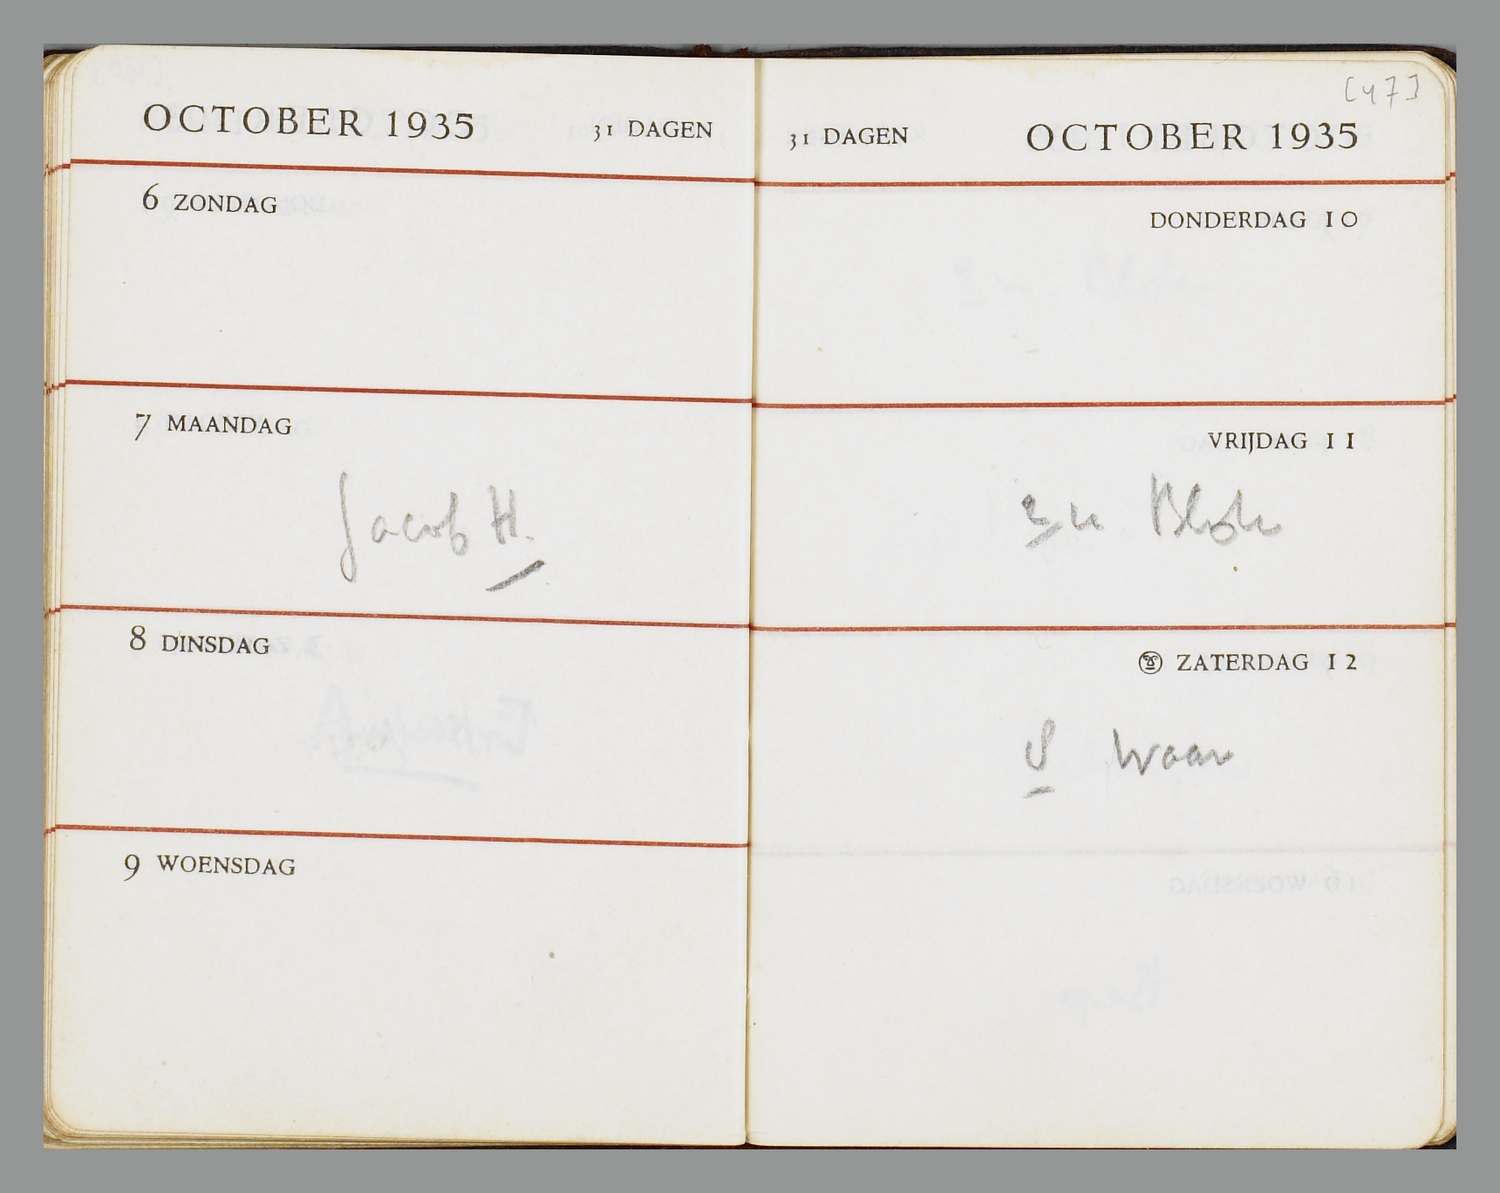 OCTOBER 1935 31 DAGEN
6 ZONDAG
7 MAANDAG
Jacob H.
8 DINSDAG
9 WOENSDAG
[47]
31 DAGEN OCTOBER 1935
DONDERDAG 10
VRIJDAG 11
ZATERDAG 12
S Waar